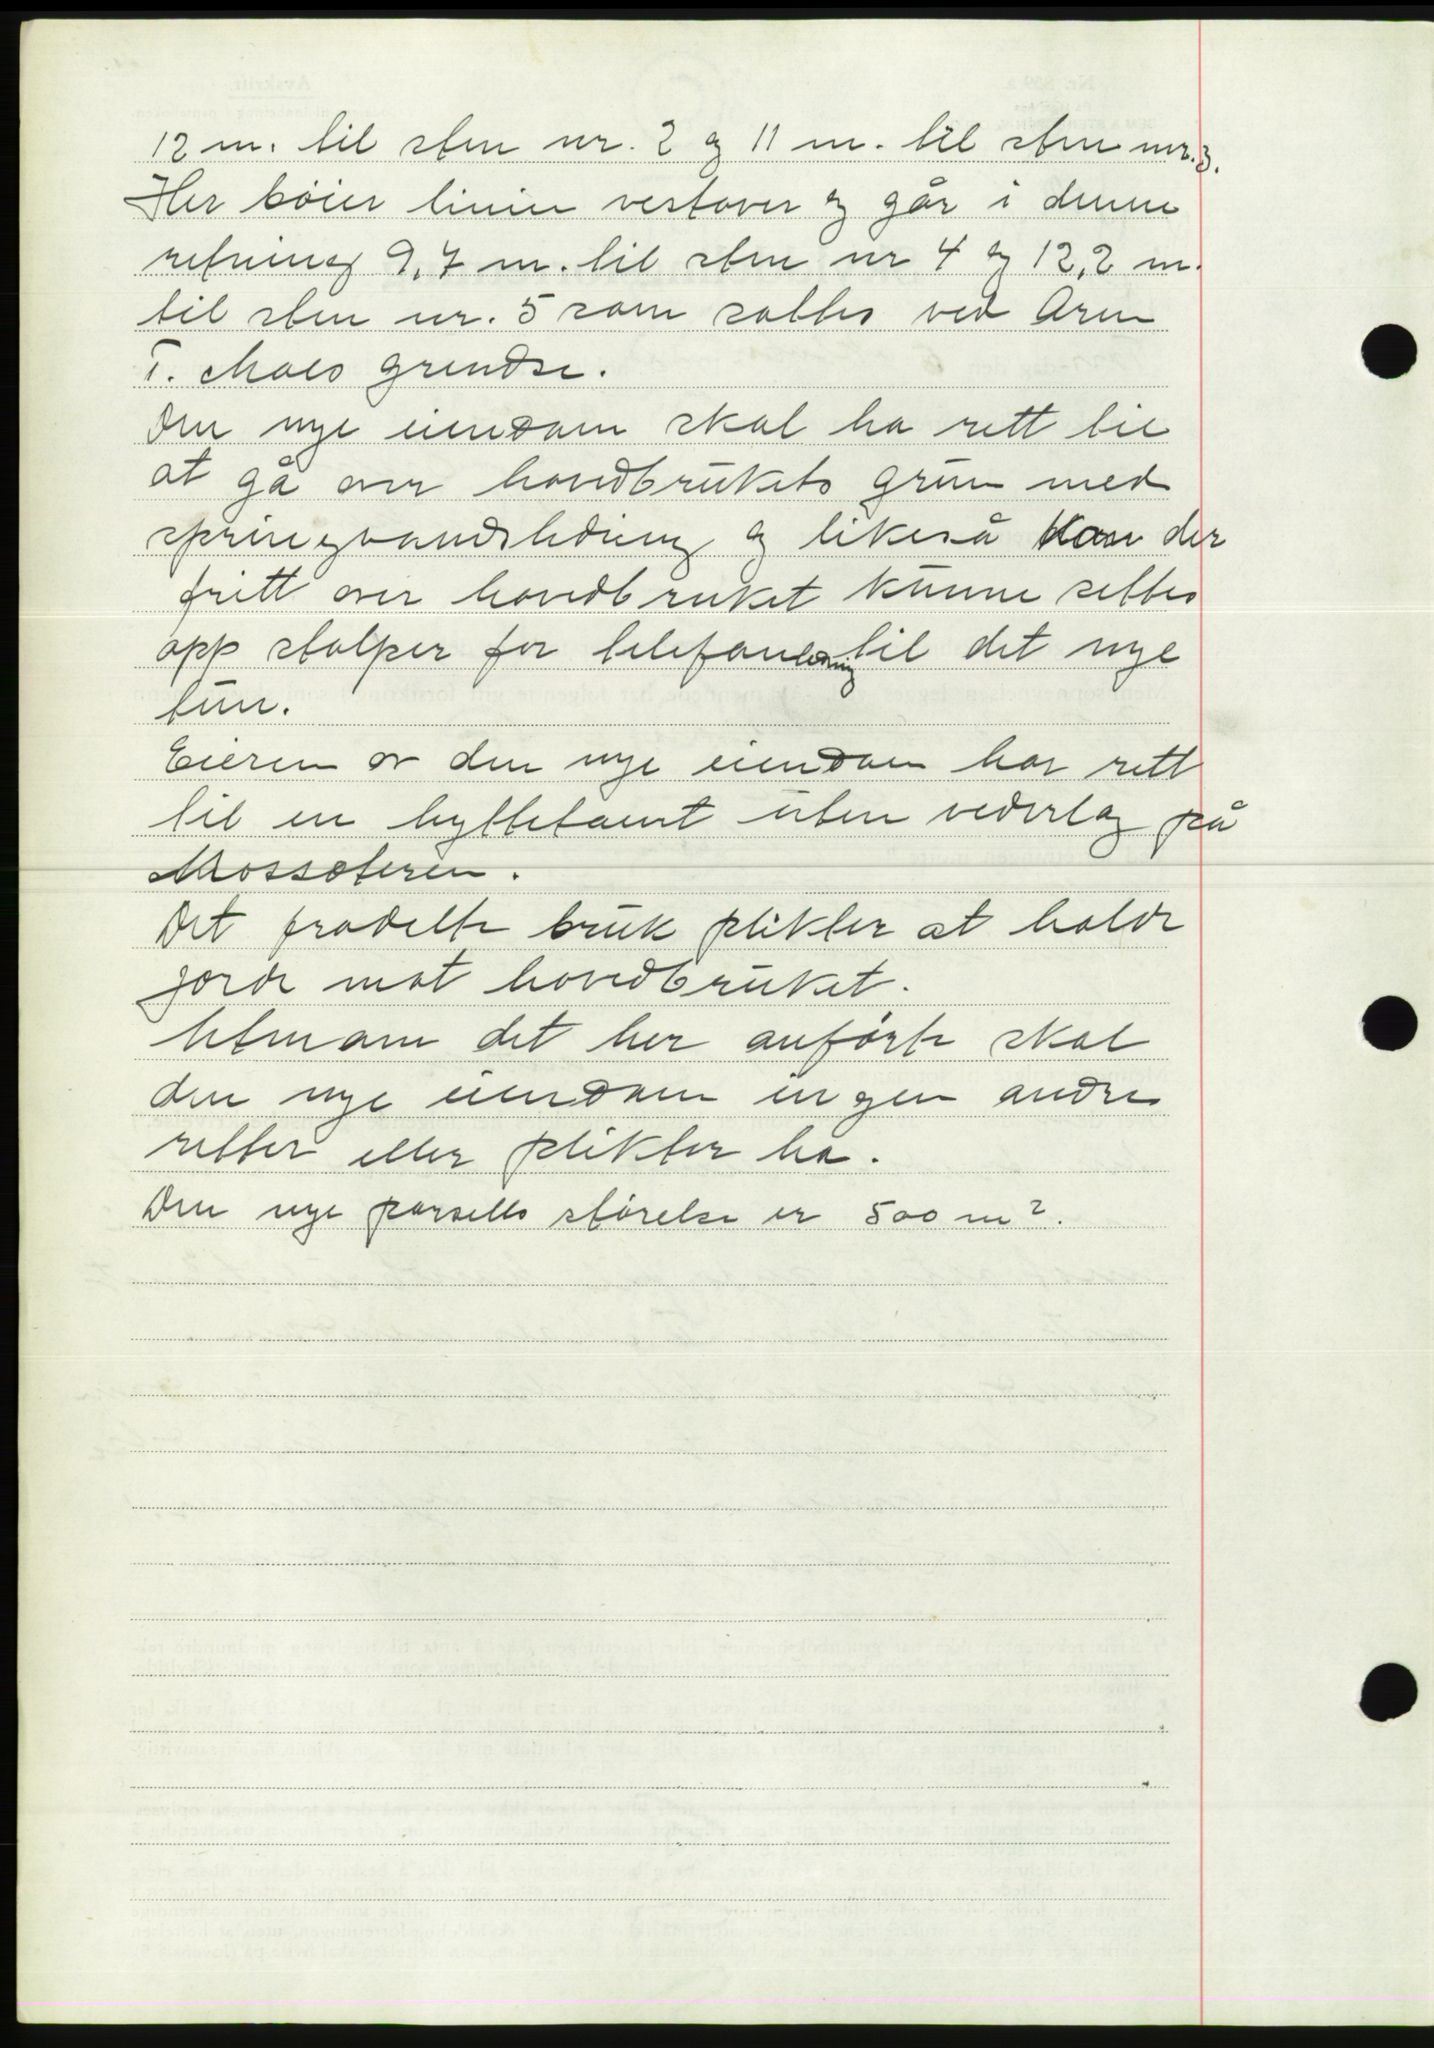 12 m. til sten nr. 2 og 11 m. til sten nr. 3.
Her böier linien vestover og går i denne
retning 9,7 m. til sten nr 4 og 12,2 m.
til sten nr. 5 som sattes ved Arne
T. Moes grendse.
Den nye eiendom skal ha rett til
at gå over hovedbrukets grun med
springvandsledning og likeså kan der
fritt over hovedbruket kunne settes
opp stolper for telefonledning til det nye
tun.
Eieren av den nye eiendom har rett
til en hyttetomt uten vederlag på
Mossæteren.
Det fradelte bruk plikter at holde
gjerde mot hovedbruket.
Utenom det her anförte skal
den nye eiendom ingen andre
retter eller plikter ha.
Den nye parsells störelse er 500 m².